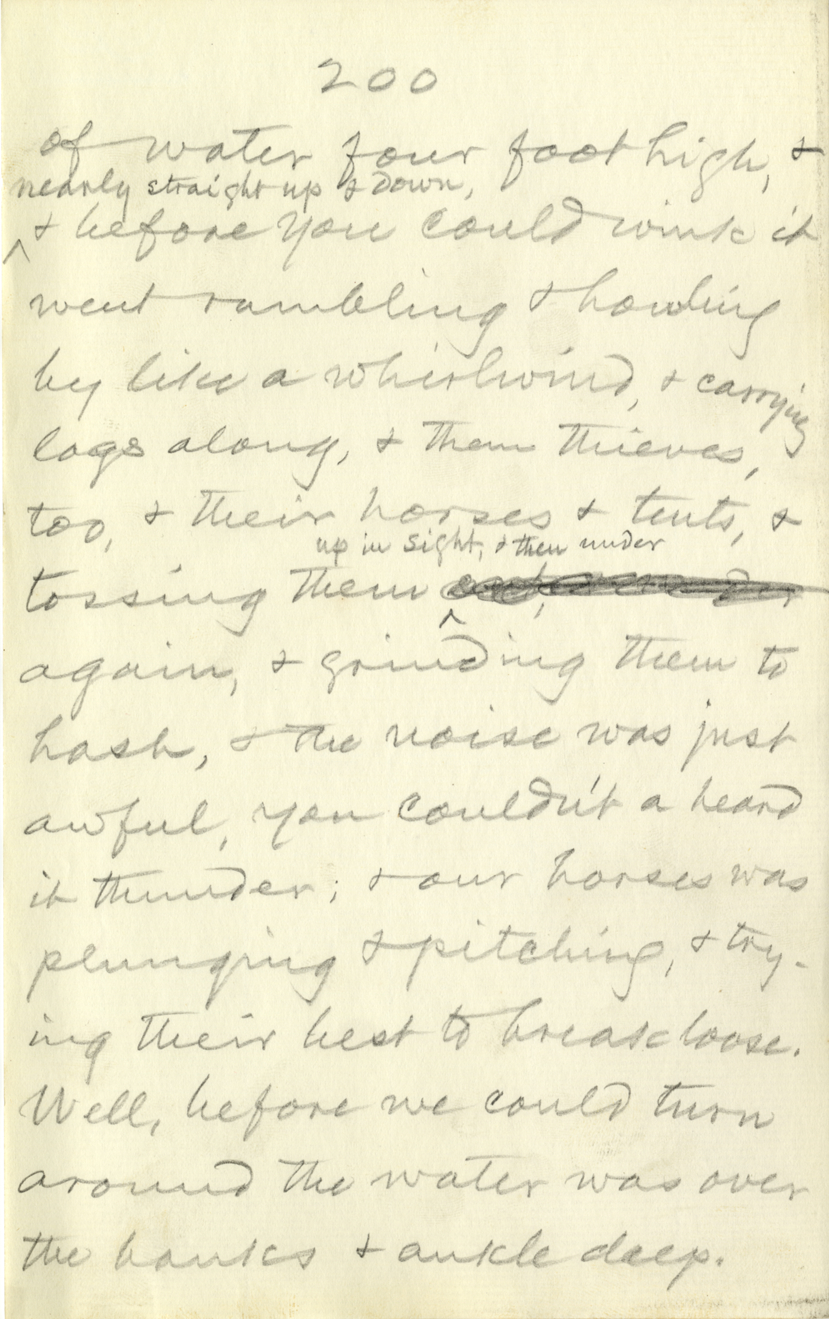 200
of water four foot high, &
nearly straight up & down,
& before you could wink it
went rumbling & howling
by like a whirlwind, & carrying
logs along, & them thieves,
too, & their horses & tents, &
up in sight, & then under
tossing them
again, & grinding them to
hash, & the noise was just
awful, you couldn't a heard
it thunder; & our horses was
plunging & pitching, & try-
ing their best to break loose.
Well, before we could turn
around the water was over
the banks & ankle deep.